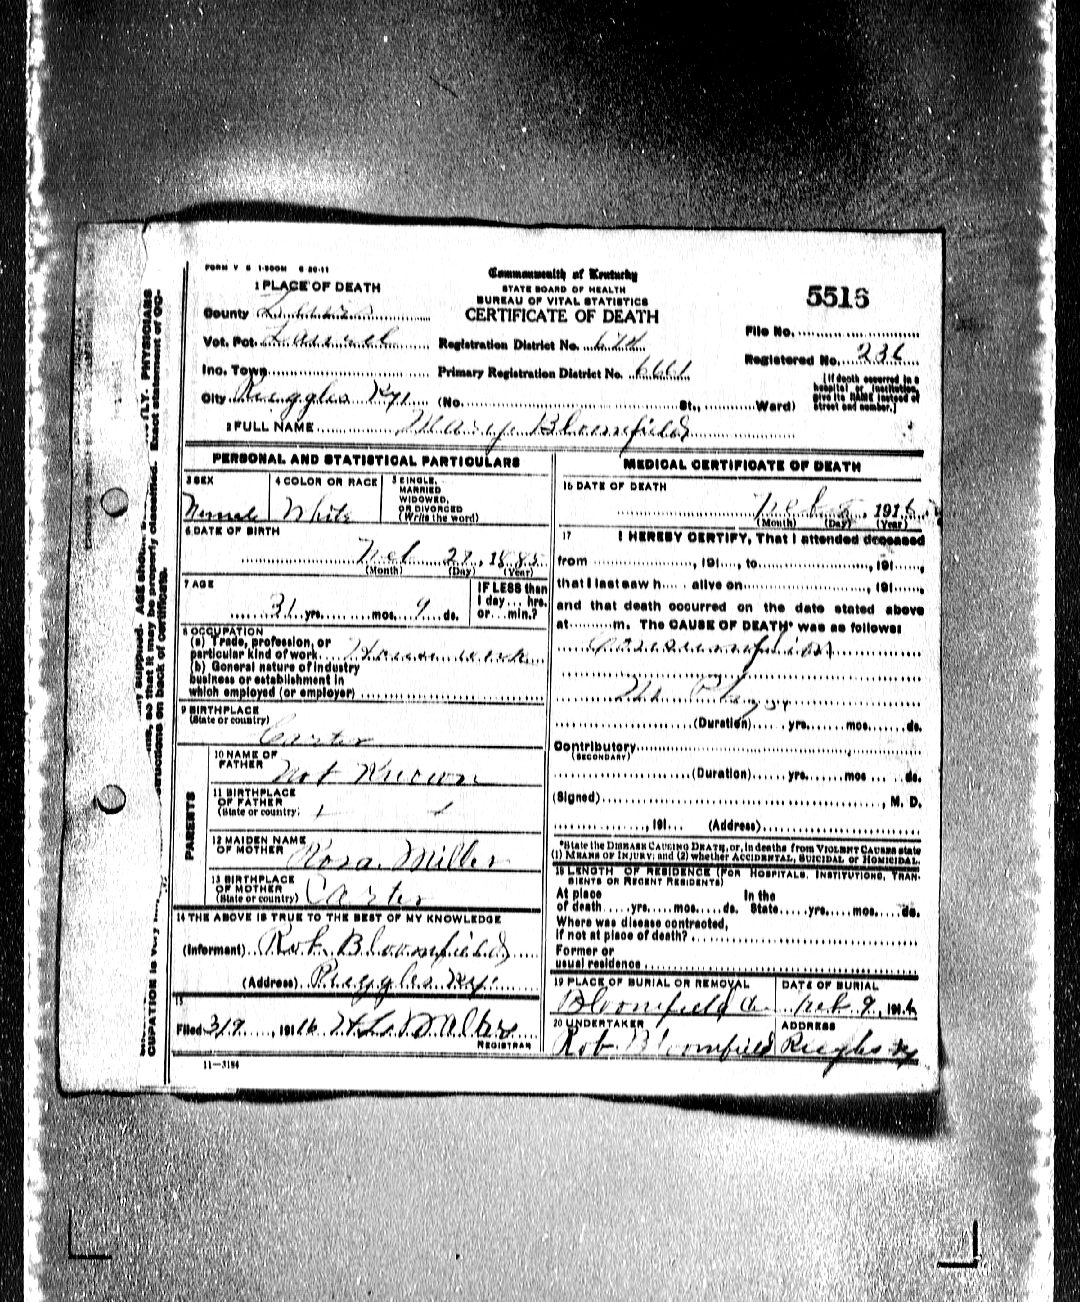 FORM V S 1-500M 6 20-11
Commonwealth of Kentucky
STATE BOARD OF HEALTH
BUREAU OF VITAL STATISTICS
CERTIFICATE OF DEATH
5516
1 PLACE OF DEATH
County Lewis
Vot. Pct. Laurel
Registration District No. 672
File No.
Registered No. 236
Inc. Town
Primary Registration District No. 6661
City Ruggles Ky. (No. St., Ward)
[If death occurred in a hospital or institution, give its NAME instead of street and number.]
2 FULL NAME Mary Bloomfield
PERSONAL AND STATISTICAL PARTICULARS
3 SEX
Female
4 COLOR OR RACE
White
5 SINGLE, MARRIED WIDOWED, OR DIVORCED (Write the word)
6 DATE OF BIRTH
Feb 27, 1885
(Month) (Day) (Year)
7 AGE
31 yrs. mos. 9 ds.
IF LESS than 1 day... hrs. or... min.?
8 OCCUPATION
(a) Trade, profession, or particular kind of work House work
(b) General nature of industry business or establishment in which employed (or employer)
9 BIRTHPLACE
(State or country)
Carter
PARENTS
10 NAME OF FATHER
Not Known
11 BIRTHPLACE OF FATHER
(State or country)
12 MAIDEN NAME OF MOTHER Rosa Miller
13 BIRTHPLACE OF MOTHER
(State or country) Carter
14 THE ABOVE IS TRUE TO THE BEST OF MY KNOWLEDGE
(Informant) Rob Bloomfield
(Address) Ruggles Ky.
15
Filed 3/9, 1916
REGISTRAR
11—3184
MEDICAL CERTIFICATE OF DEATH
16 DATE OF DEATH
Feb, 1916
(Month) (Day) (Year)
17 I HEREBY CERTIFY, That I attended deceased
from, 191..., to, 191...,
that I last saw h... alive on, 191...,
and that death occurred on the date stated above
at m. The CAUSE OF DEATH* was as follows:
Consumption
No Phys
(Duration) yrs. mos. ds.
Contributory
(SECONDARY)
(Duration) yrs. mos. ds.
(Signed), M. D.
, 191... (Address)
*State the DISEASE CAUSING DEATH, or, in deaths from VIOLENT CAUSES state
(1) MEANS OF INJURY; and (2) whether ACCIDENTAL, SUICIDAL or HOMICIDAL.
18 LENGTH OF RESIDENCE (FOR HOSPITALS, INSTITUTIONS, TRANSIENTS OR RECENT RESIDENTS)
At place of death yrs. mos. ds. In the State yrs. mos. ds.
Where was disease contracted,
if not at place of death?
Former or
usual residence
19 PLACE OF BURIAL OR REMOVAL
Bloomfield
DATE OF BURIAL
Feb 9, 1916
20 UNDERTAKER
Rob Bloomfield
ADDRESS
Ruggles Ky